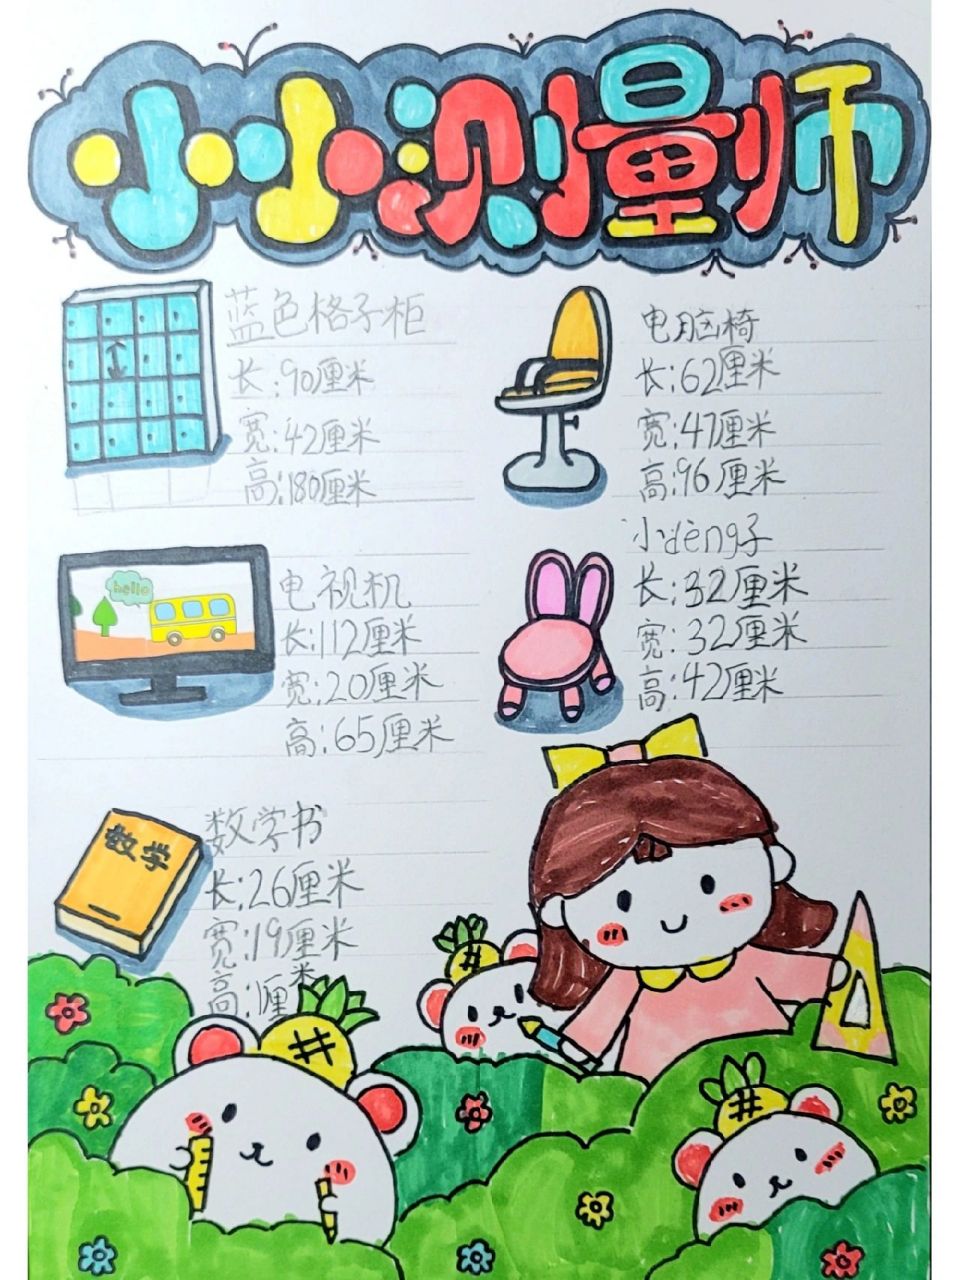 小小测量师
蓝色格子柜
长:90厘米
宽:42厘米
高:180厘米
电脑椅
长:62厘米
宽:47厘米
高:96厘米
hello
电视机
长:112厘米
宽:20厘米
高:65厘米
小dèng子
长:32厘米
宽:32厘米
高:42厘米
数学
数学书
长:26厘米
宽:19厘米
高:1厘米